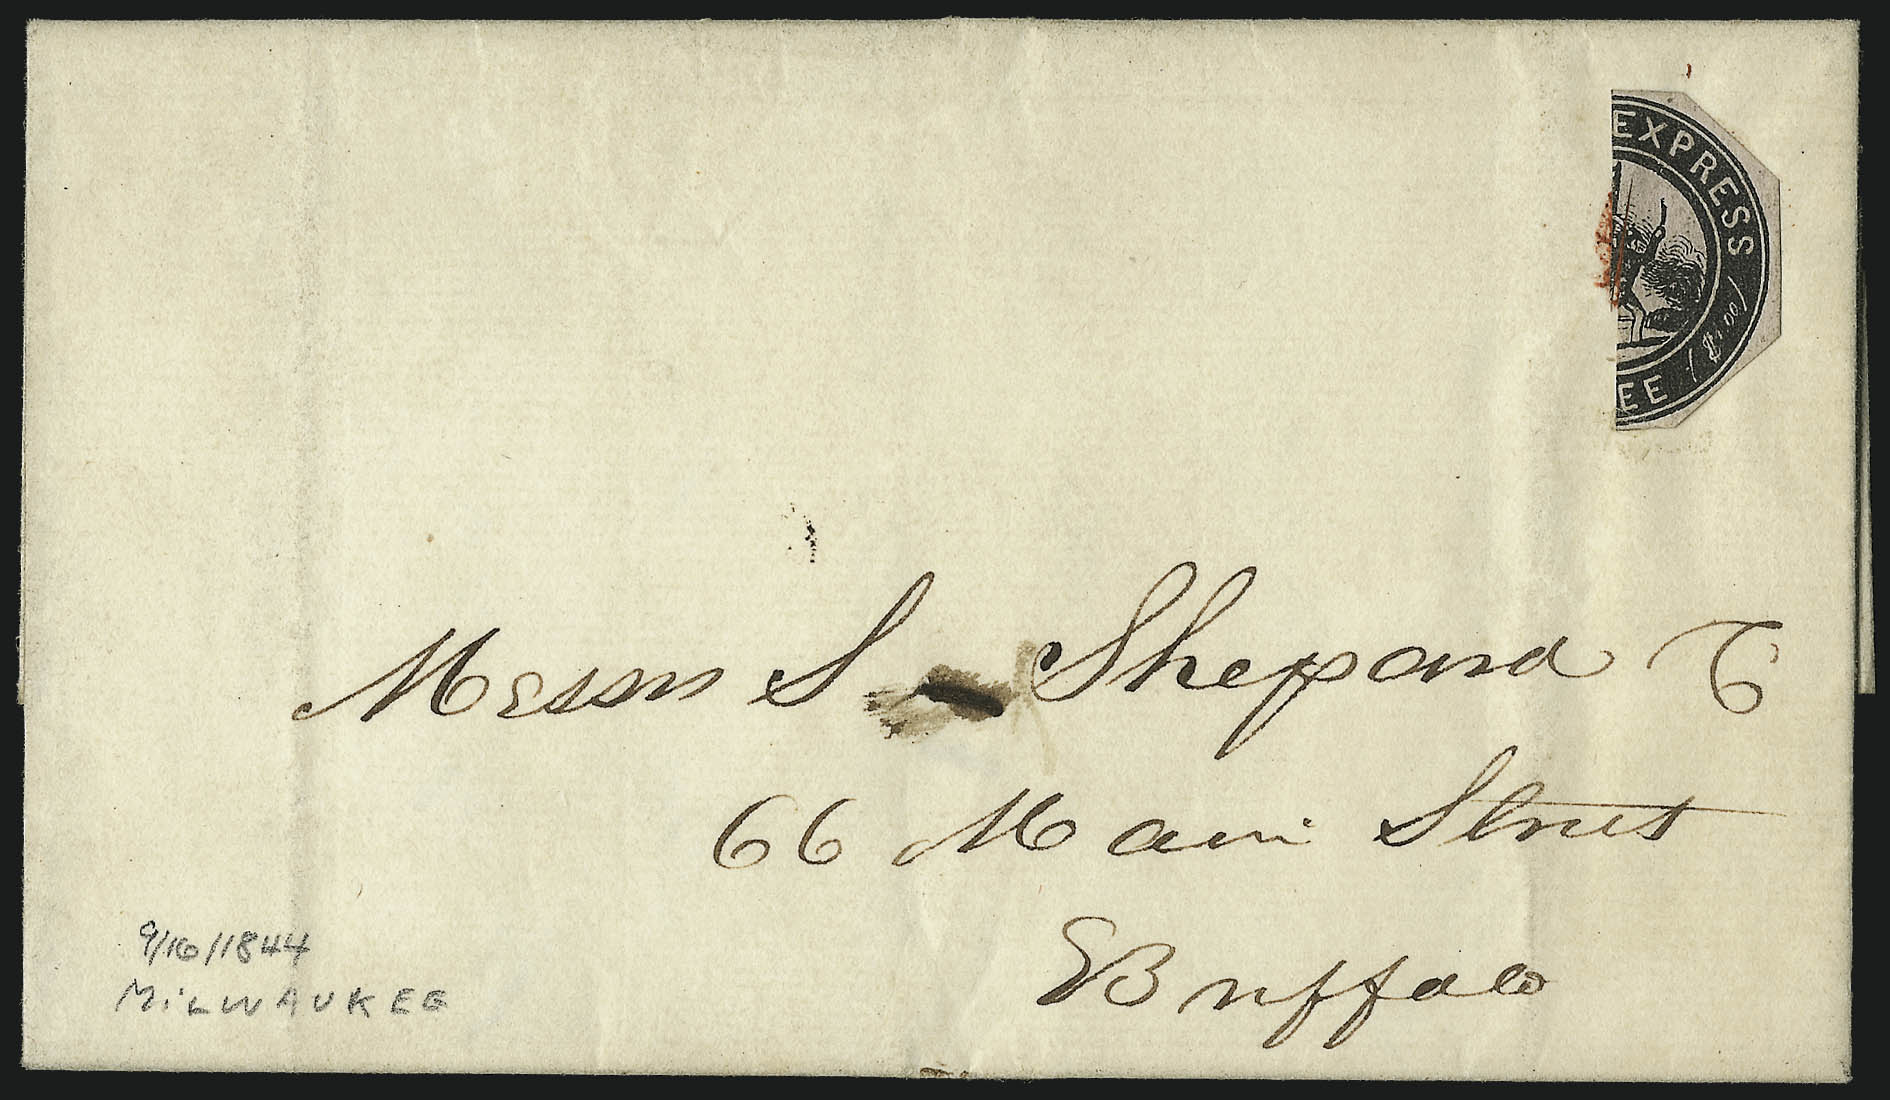 EXPRESS
EE
Messrs S Shepard
66 Main Street
Buffalo
9/16/1844
MiLWAUKEE